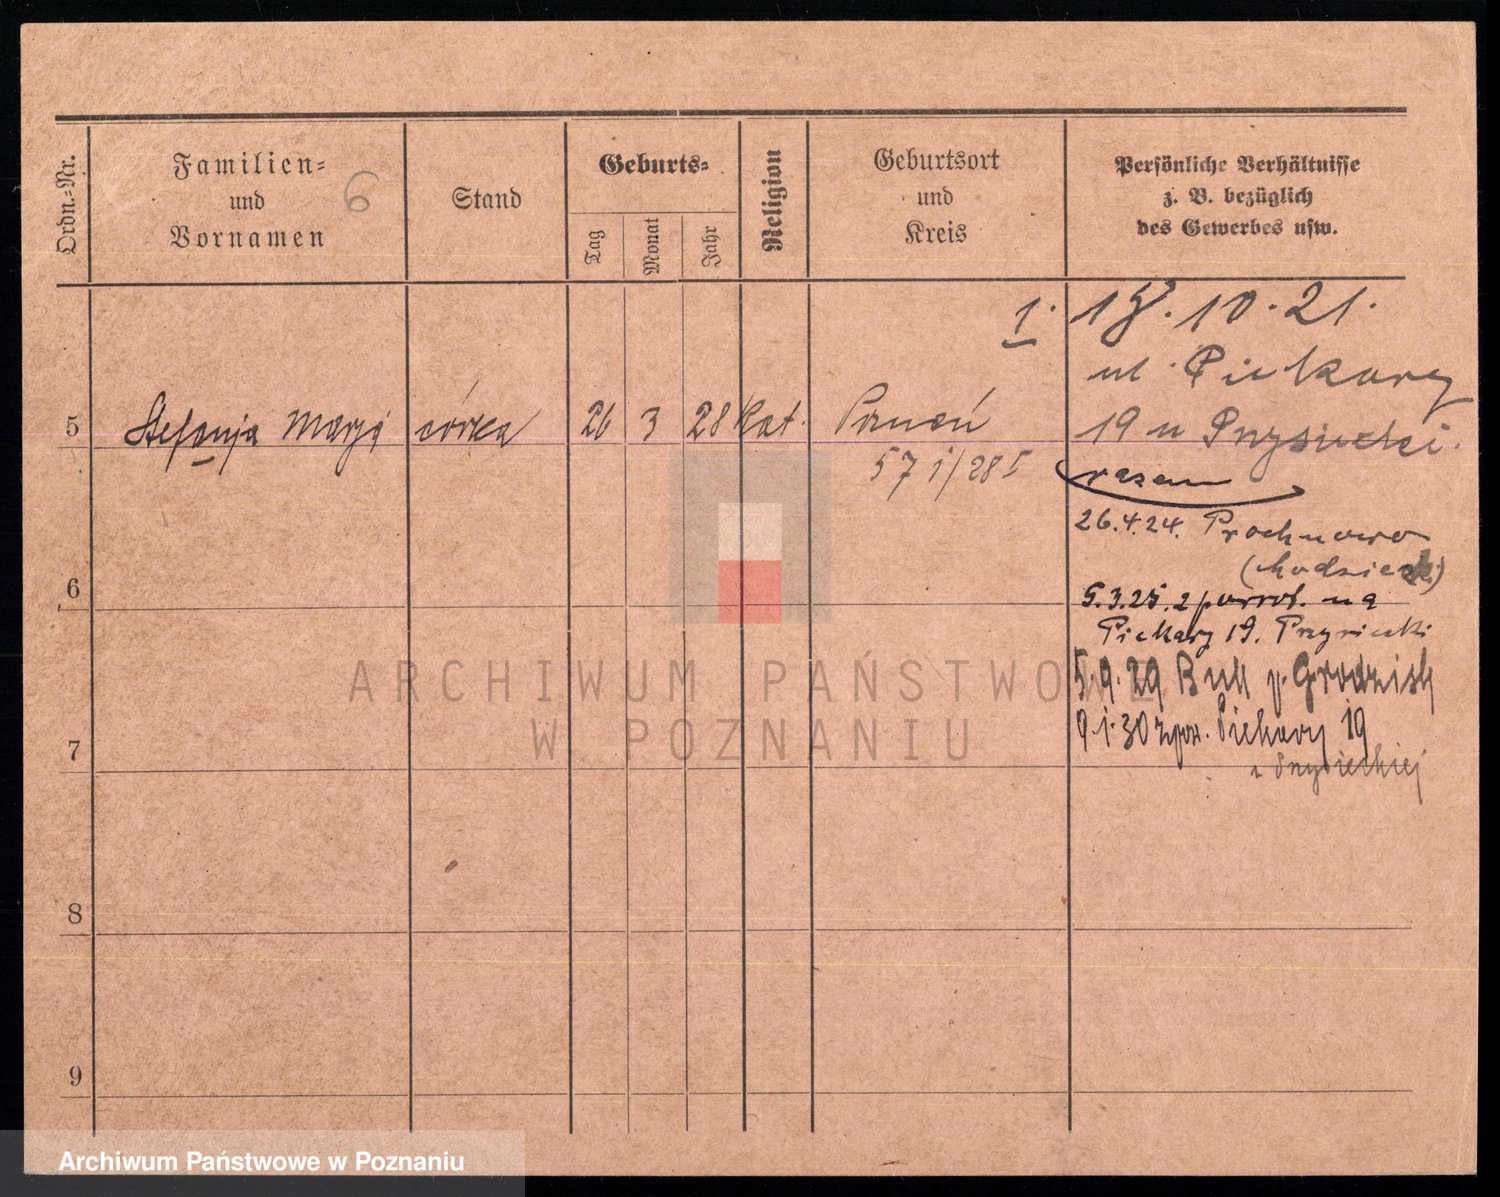 Ordn.-Nr.
Familien-
und
Vornamen
6
Stand
Geburts-
Tag
Monat
Jahr
Religion
Geburtsort
und
Kreis
Persönliche Verhältnisse
z. B. bezüglich
des Gewerbes usw.
1. 10.21.
ul. Piekary
19 u Przysiecki.
razem
5 Stefanja Marja córka 26 3 28 kat. Poznań
571/28 I
26.4.24. Prochnowo
(Chodzież)
5.3.25. z powrot. na
Piekary 19. Przysiecki
5.9.29 Buk p. Grodzisk
9.1.30 zpow. Piekary 19
u Przysieckiej
6
7
8
9
ARCHIWUM PAŃSTWOWE
W POZNANIU
Archiwum Państwowe w Poznaniu